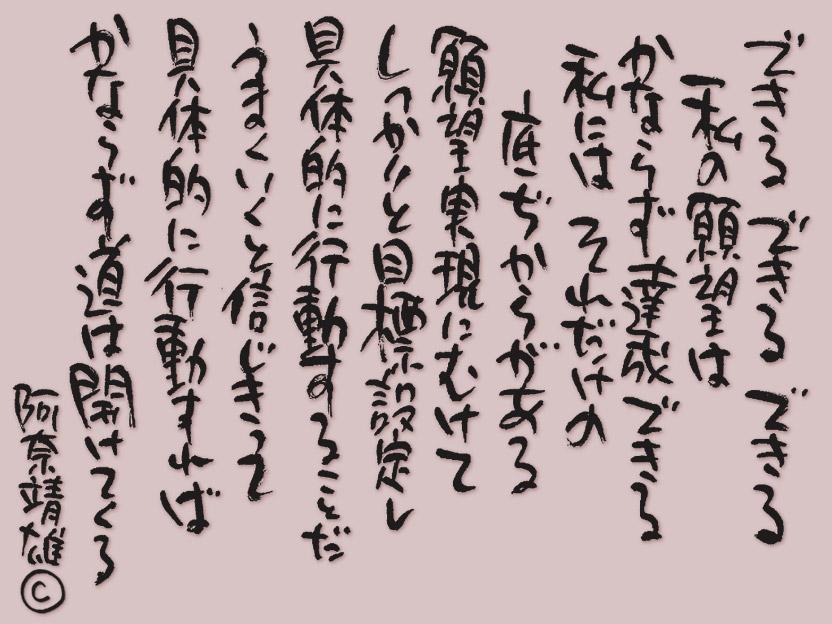 できる できる できる
私の願望は
かならず達成できる
私には それだけの
底ぢからがある
願望実現にむけて
しっかりと目標設定し
具体的に行動することだ
うまくいくと信じきって
具体的に行動すれば
かならず道は開けてくる
阿奈靖雄©